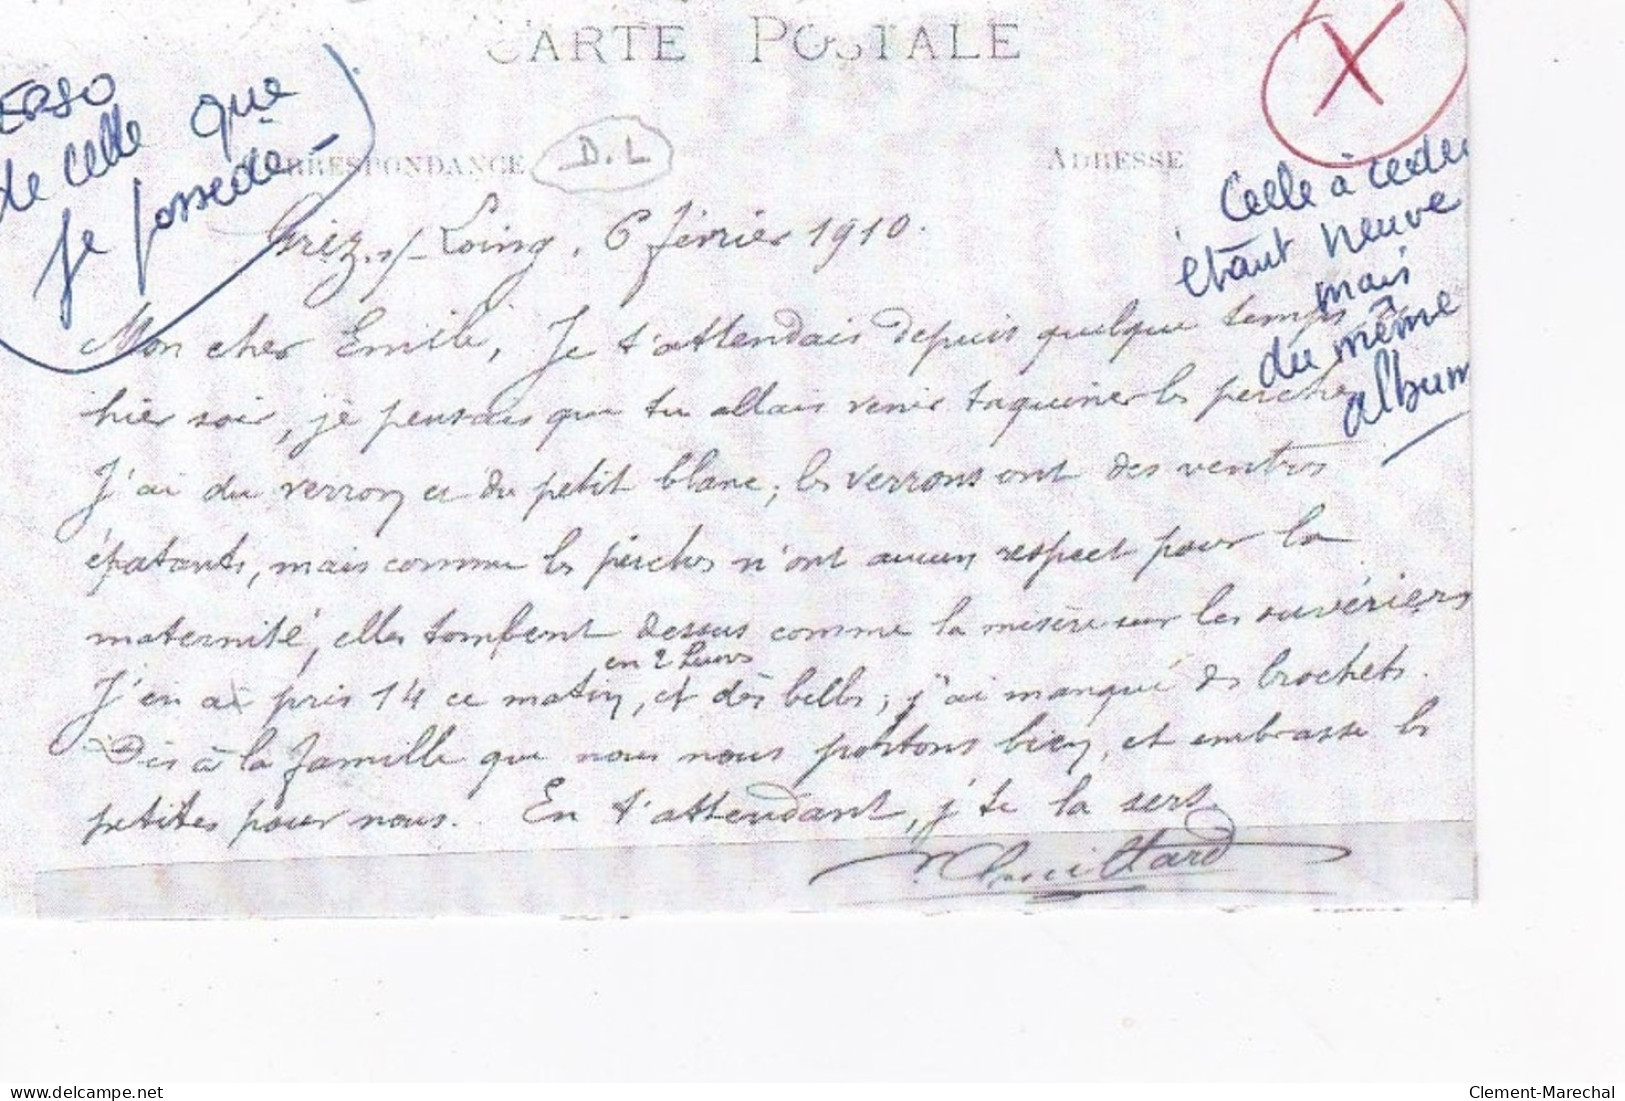 CARTE POSTALE
VERSO
de celle que
je possède -
CORRESPONDANCE
D.L
ADRESSE
Celle à céder
étant neuve
mais
du même
album
Grez. s/- Loing, 6 février 1910.
Mon cher Emile, Je t'attendais depuis quelque temps
hier soir, je pensais que tu allais venir taquiner les perches
J'ai du verron et du petit blanc; les verrons ont des ventres
épatants, mais comme les perches n'ont aucun respect pour la
maternité, elles tombent dessus comme la misère sur les ouvériers
en 2 heures
J'en ai pris 14 ce matin, et des belles; j'ai manqué des brochets.
Dis à la famille que nous nous portons bien, et embrasse les
petites pour nous. En t'attendant, j'te la serre
Clement-Marechal